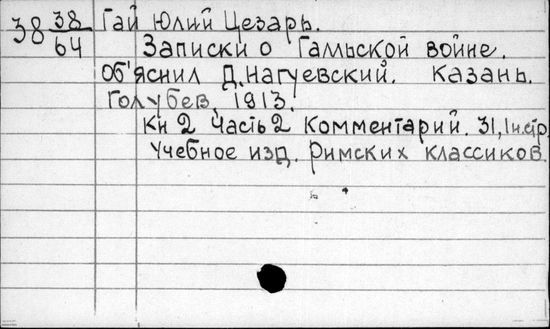 38 38/64 Гай Юлий Цезарь.
Записки о Галльской войне.
Об'яснил Д. Нагуевский. Казань.
Голубев, 1913.
Кн 2 Часть 2 Комментарий. 31, 1н.стр,
Учебное изд. Римских классиков.